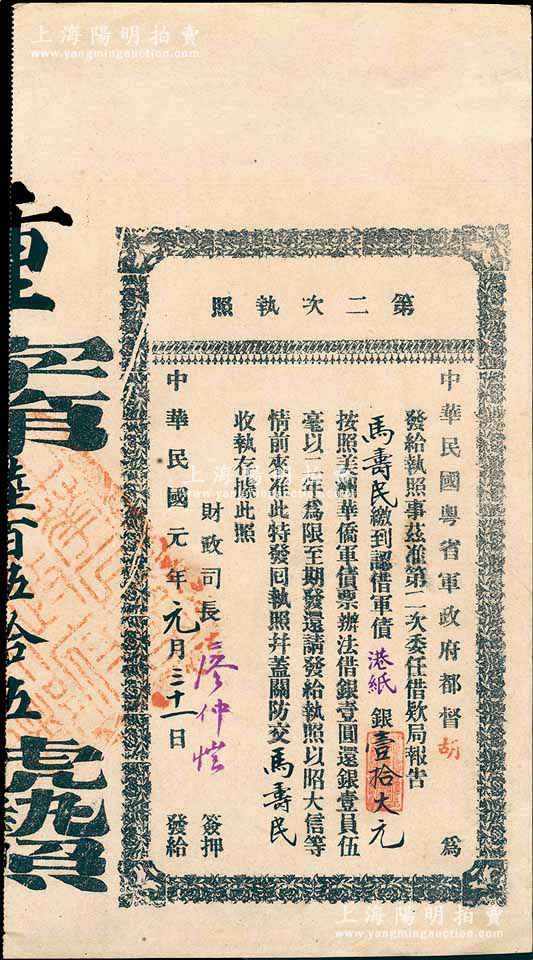 上海陽明拍賣
www.yangmingauction.com
第二次執照
中華民國粵省軍政府都督胡 為
發給執照事茲准第二次委任借欵局報告
馬壽民繳到認借軍債港紙銀壹拾大元
按照美洲華僑軍債票辦法借銀壹圓還銀壹員伍
毫以一年為限至期發還請發給執照以昭大信等
情前來准此特發囘執照幷蓋關防交馬壽民
收執存據此照
財政司長廖仲愷 簽押
中華民國元年元月三十一日 發給
重字第陸百伍拾五號
上海陽明拍賣
www.yangmingauction.com
上海陽明拍賣
www.yangmingauction.com